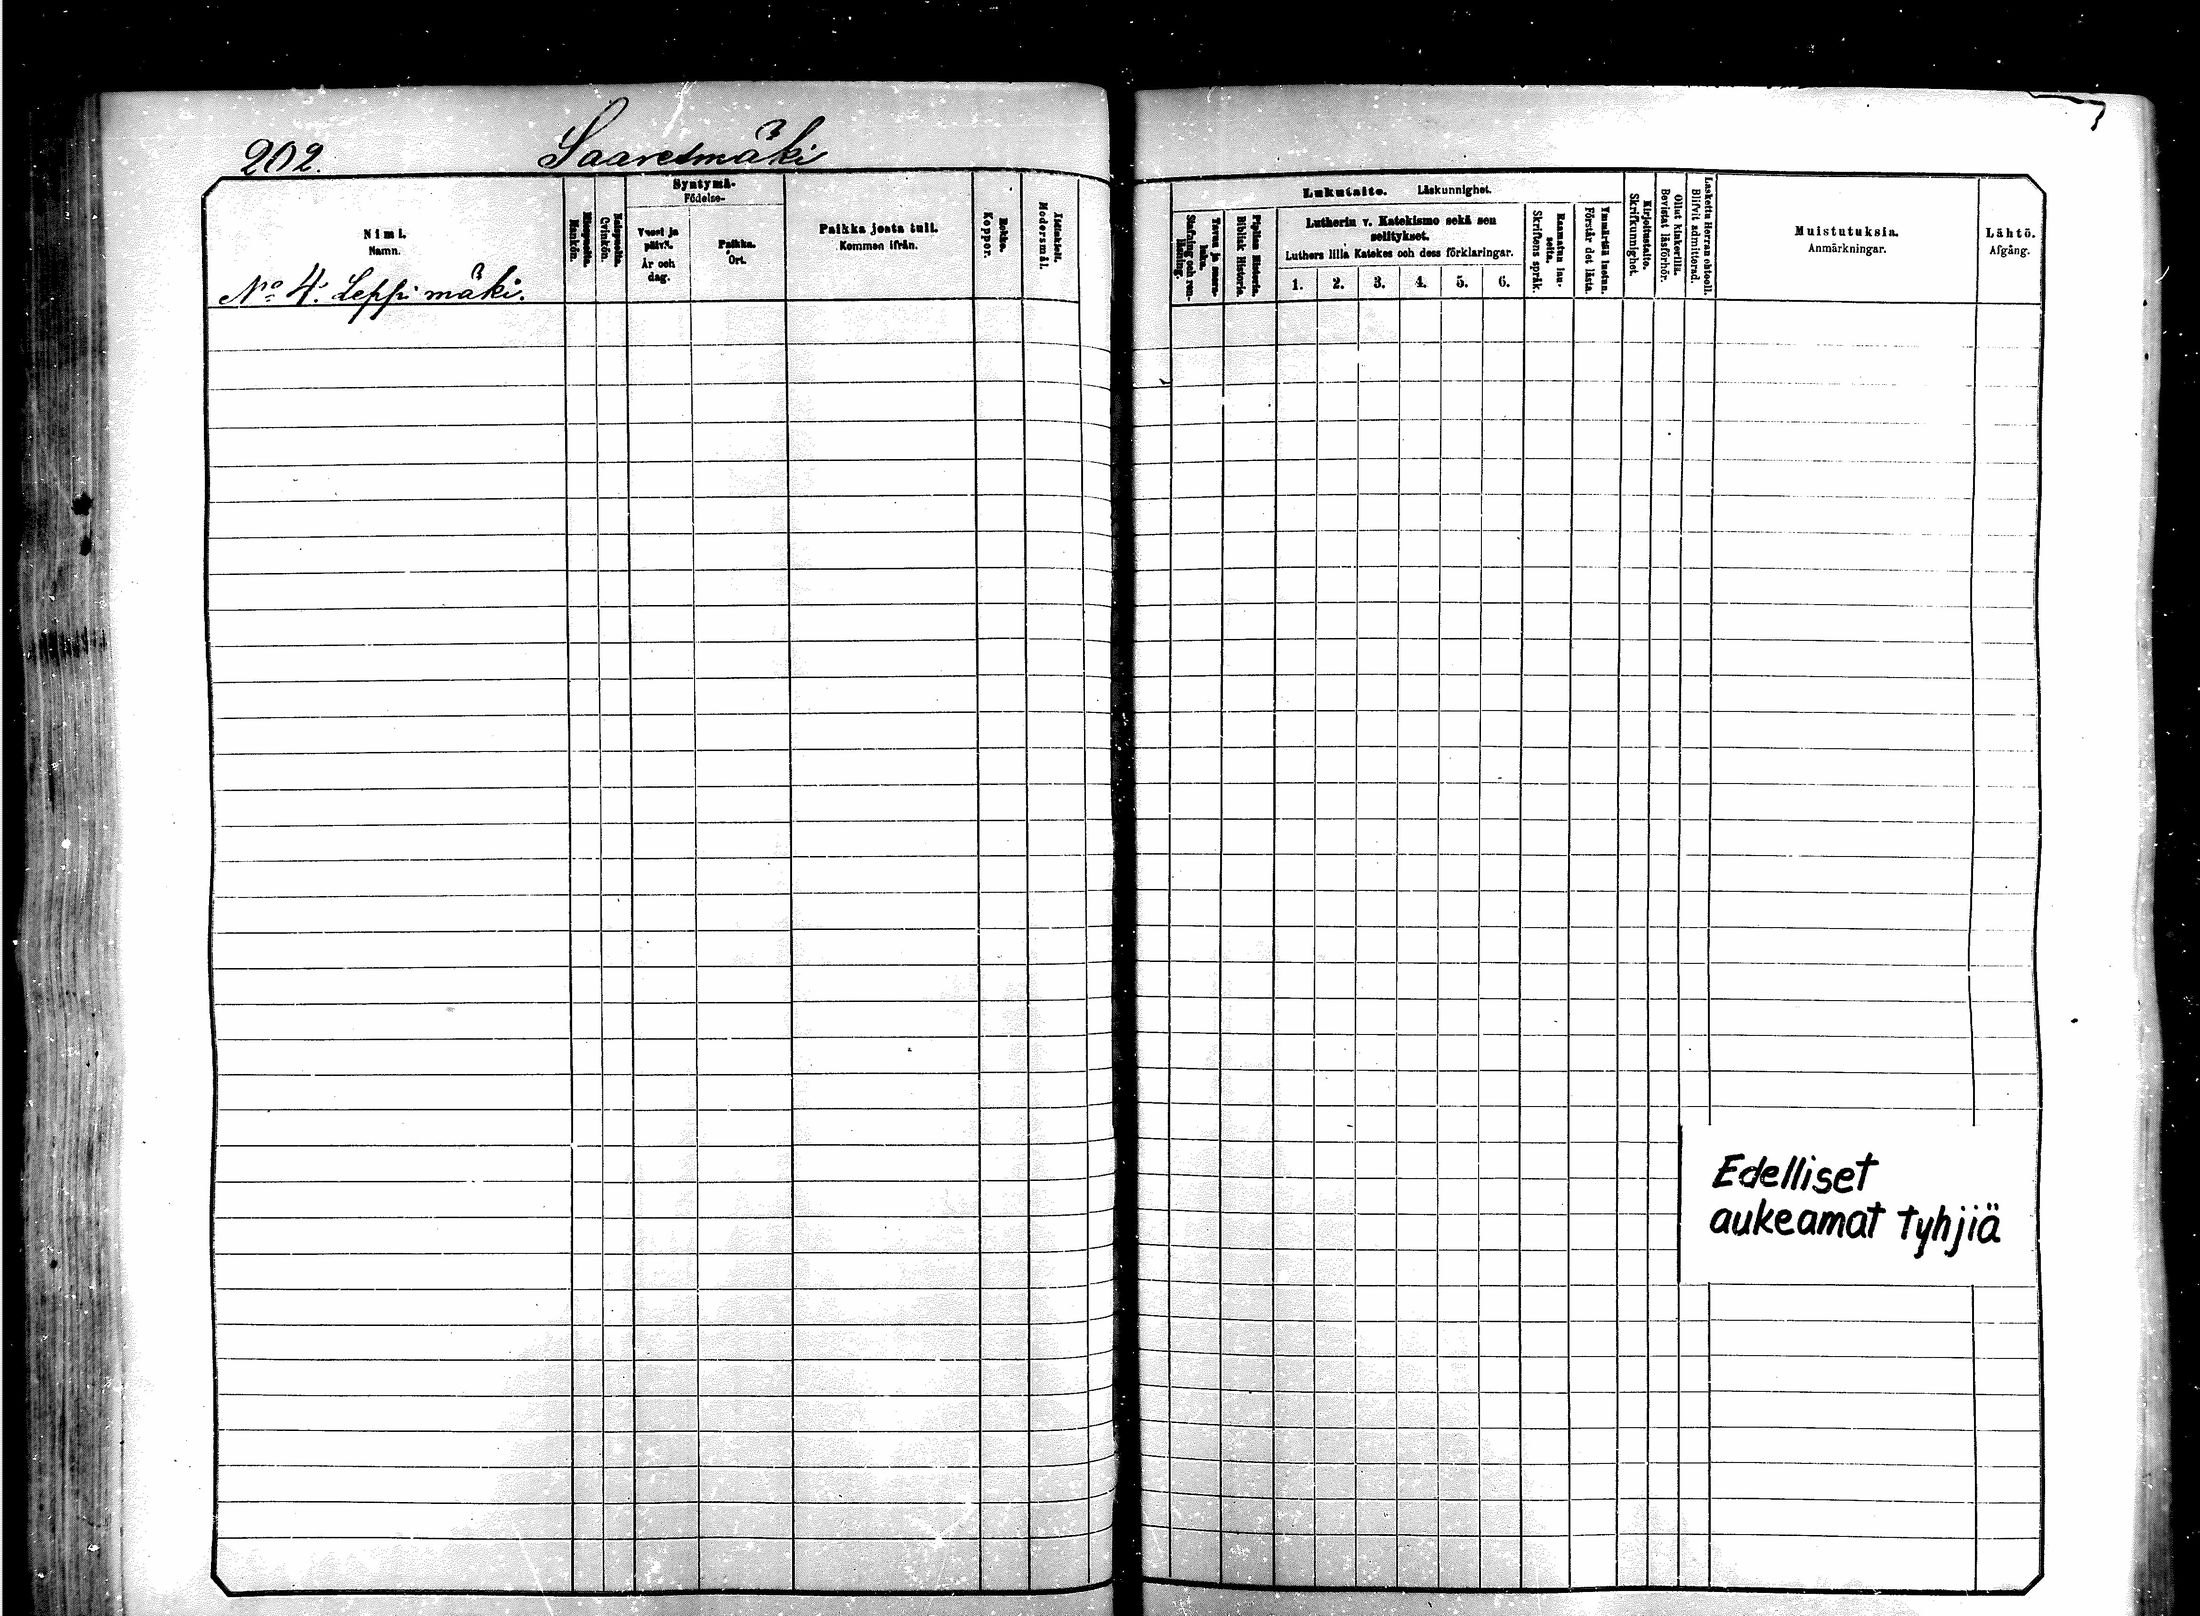 202. Saaresmäki
Nimi.
Namn.
Miespuolia.
Mankön.
Vaimopuolia.
Qvinkön.
Syntymä-
Födelse-
Vuosi ja
päivä.
År och
dag.
Paikka.
Ort.
Paikka josta tuli.
Kommen ifrån.
Rokko.
Koppor.
Äidinkieli.
Modersmål.
No 4. Leppimäki.
Lukutaito. Läskunnighet.
Tavaa ja sisern-
Stafning och ren-
läsning.
Piplian Historia.
Biblisk Historia.
Lutherin v. Katekismo sekä sen
selitykset.
Luthers lilla Katekes och dess förklaringar.
1. 2. 3. 4. 5. 6.
Raamatun lau-
seita.
Skriftens språk.
Ymmärtää luetun.
Förstår det lästa.
Kirjoitustaito.
Skrifkunnighet.
Ollut kinkerillä.
Bevistat läsförhör.
Laskettu Herran ehtooll.
Blifvit admitterad.
Muistutuksia.
Anmärkningar.
Lähtö.
Afgång.
Edelliset
aukeamat tyhjiä